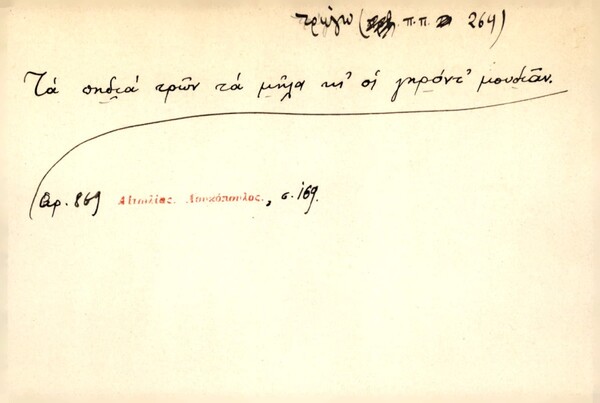 τρώγω (π.π. 264)
Τά πηδιά τρῶν τά μῆλα κι' οἱ γηρόντ' μουδιᾶν.
(Ἀρ. 869 Αἰτωλίας. Λουκόπουλος., σ. 169.